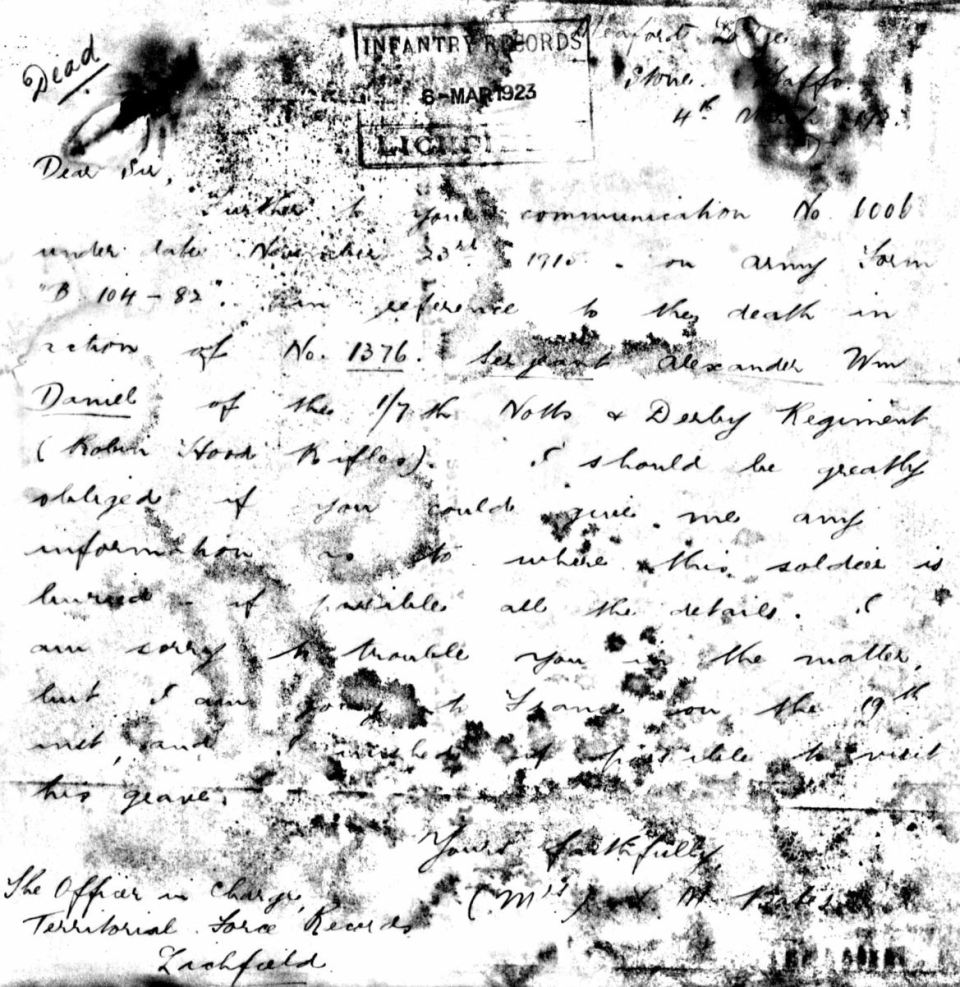 Dead
INFANTRY RECORDS
6-MAR 1923
LICHFIELD
Stone. Staffs.
4th March
Dear Sir,
Further to your communication No. 6006
under date November 23rd 1915. on army Form
"B. 104-82". in reference to the death in
action of No. 1376. Sergeant Alexander Wm
Daniel of the 1/7th Notts & Derby Regiment
(Robin Hood Rifles). I should be greatly
obliged if you could give me any
information as to where this soldier is
buried - if possible all the details. I
am sorry to trouble you in the matter,
but I am going to France on the 19th
inst, and I wished if possible to visit
his grave.
Yours faithfully
(Mrs) M. Bates
The Officer in Charge,
Territorial Force Records
Lichfield.